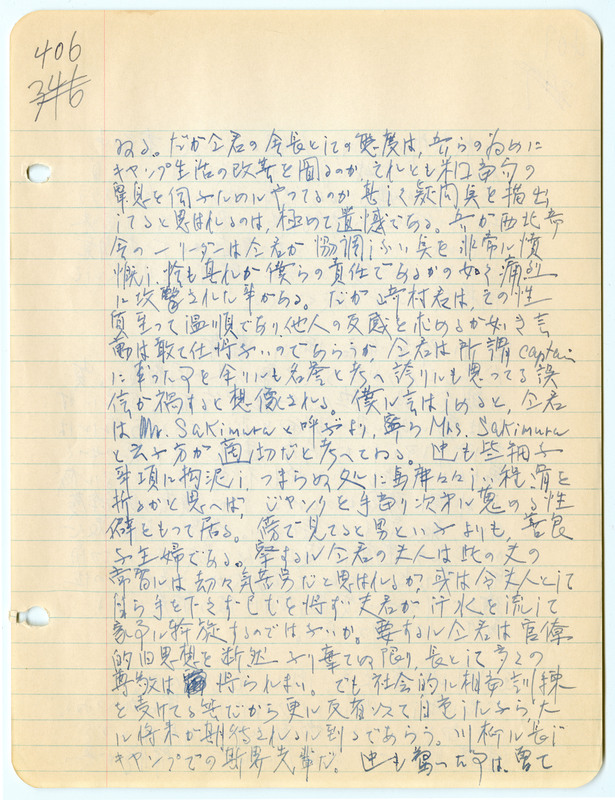 406
346
ねる。だが仝君の会長としての態度は、吾らの為めに
キャンプ生活の改善を図るのか、それとも米口当局の
鼻息を伺ふためにやつてるのか甚しく疑問点を描出
してると思はれるのは、極めて遺憾である。吾が西北部
会の一リーダーは仝君が協調しない点を非常に憤
慨し、恰も其れが僕らの責任であるかの如く痛烈
に攻撃された事がある。だが崎村君は、その性
質至って温順であり他人の反感を求めるが如き言
動は敢て仕得ないのであらうが仝君は所謂captain
に なった事を余りにも名誉と考へ誇りにも思ってる誤
信が禍すると想像される。僕に言はしめると、仝君
はMr. Sakimuraと呼ぶより、寧らMrs. Sakimura
と云ふ方が適切だと考へてゐる。 も些細な
事項に拘泥し、つまらぬ処に しい程骨を
折るかと思へば、ジャンクを手当り次第に蒐める性
癖をもって居る。傍で見てると男といふよりも、善良
な主婦である。察するに仝君の夫人は此の夫の
常習には劫々気苦労だと思はれるが、或は令夫人として
自ら手を下さず已むを得ず夫君が汗水を流して
家事に幹旋するのではないか。要するに仝君は官僚
的旧思想を断然 り棄てぬ限り、長として多くの
尊敬は 得られまい。でも社会的に相当訓練
を受けてる筈だから更に反省 して自覚したなら、大
に将来が期待されるに到るであらう。川柳に長じ
キャンプでの斯界先輩だ。 も驚いた事は、曽て